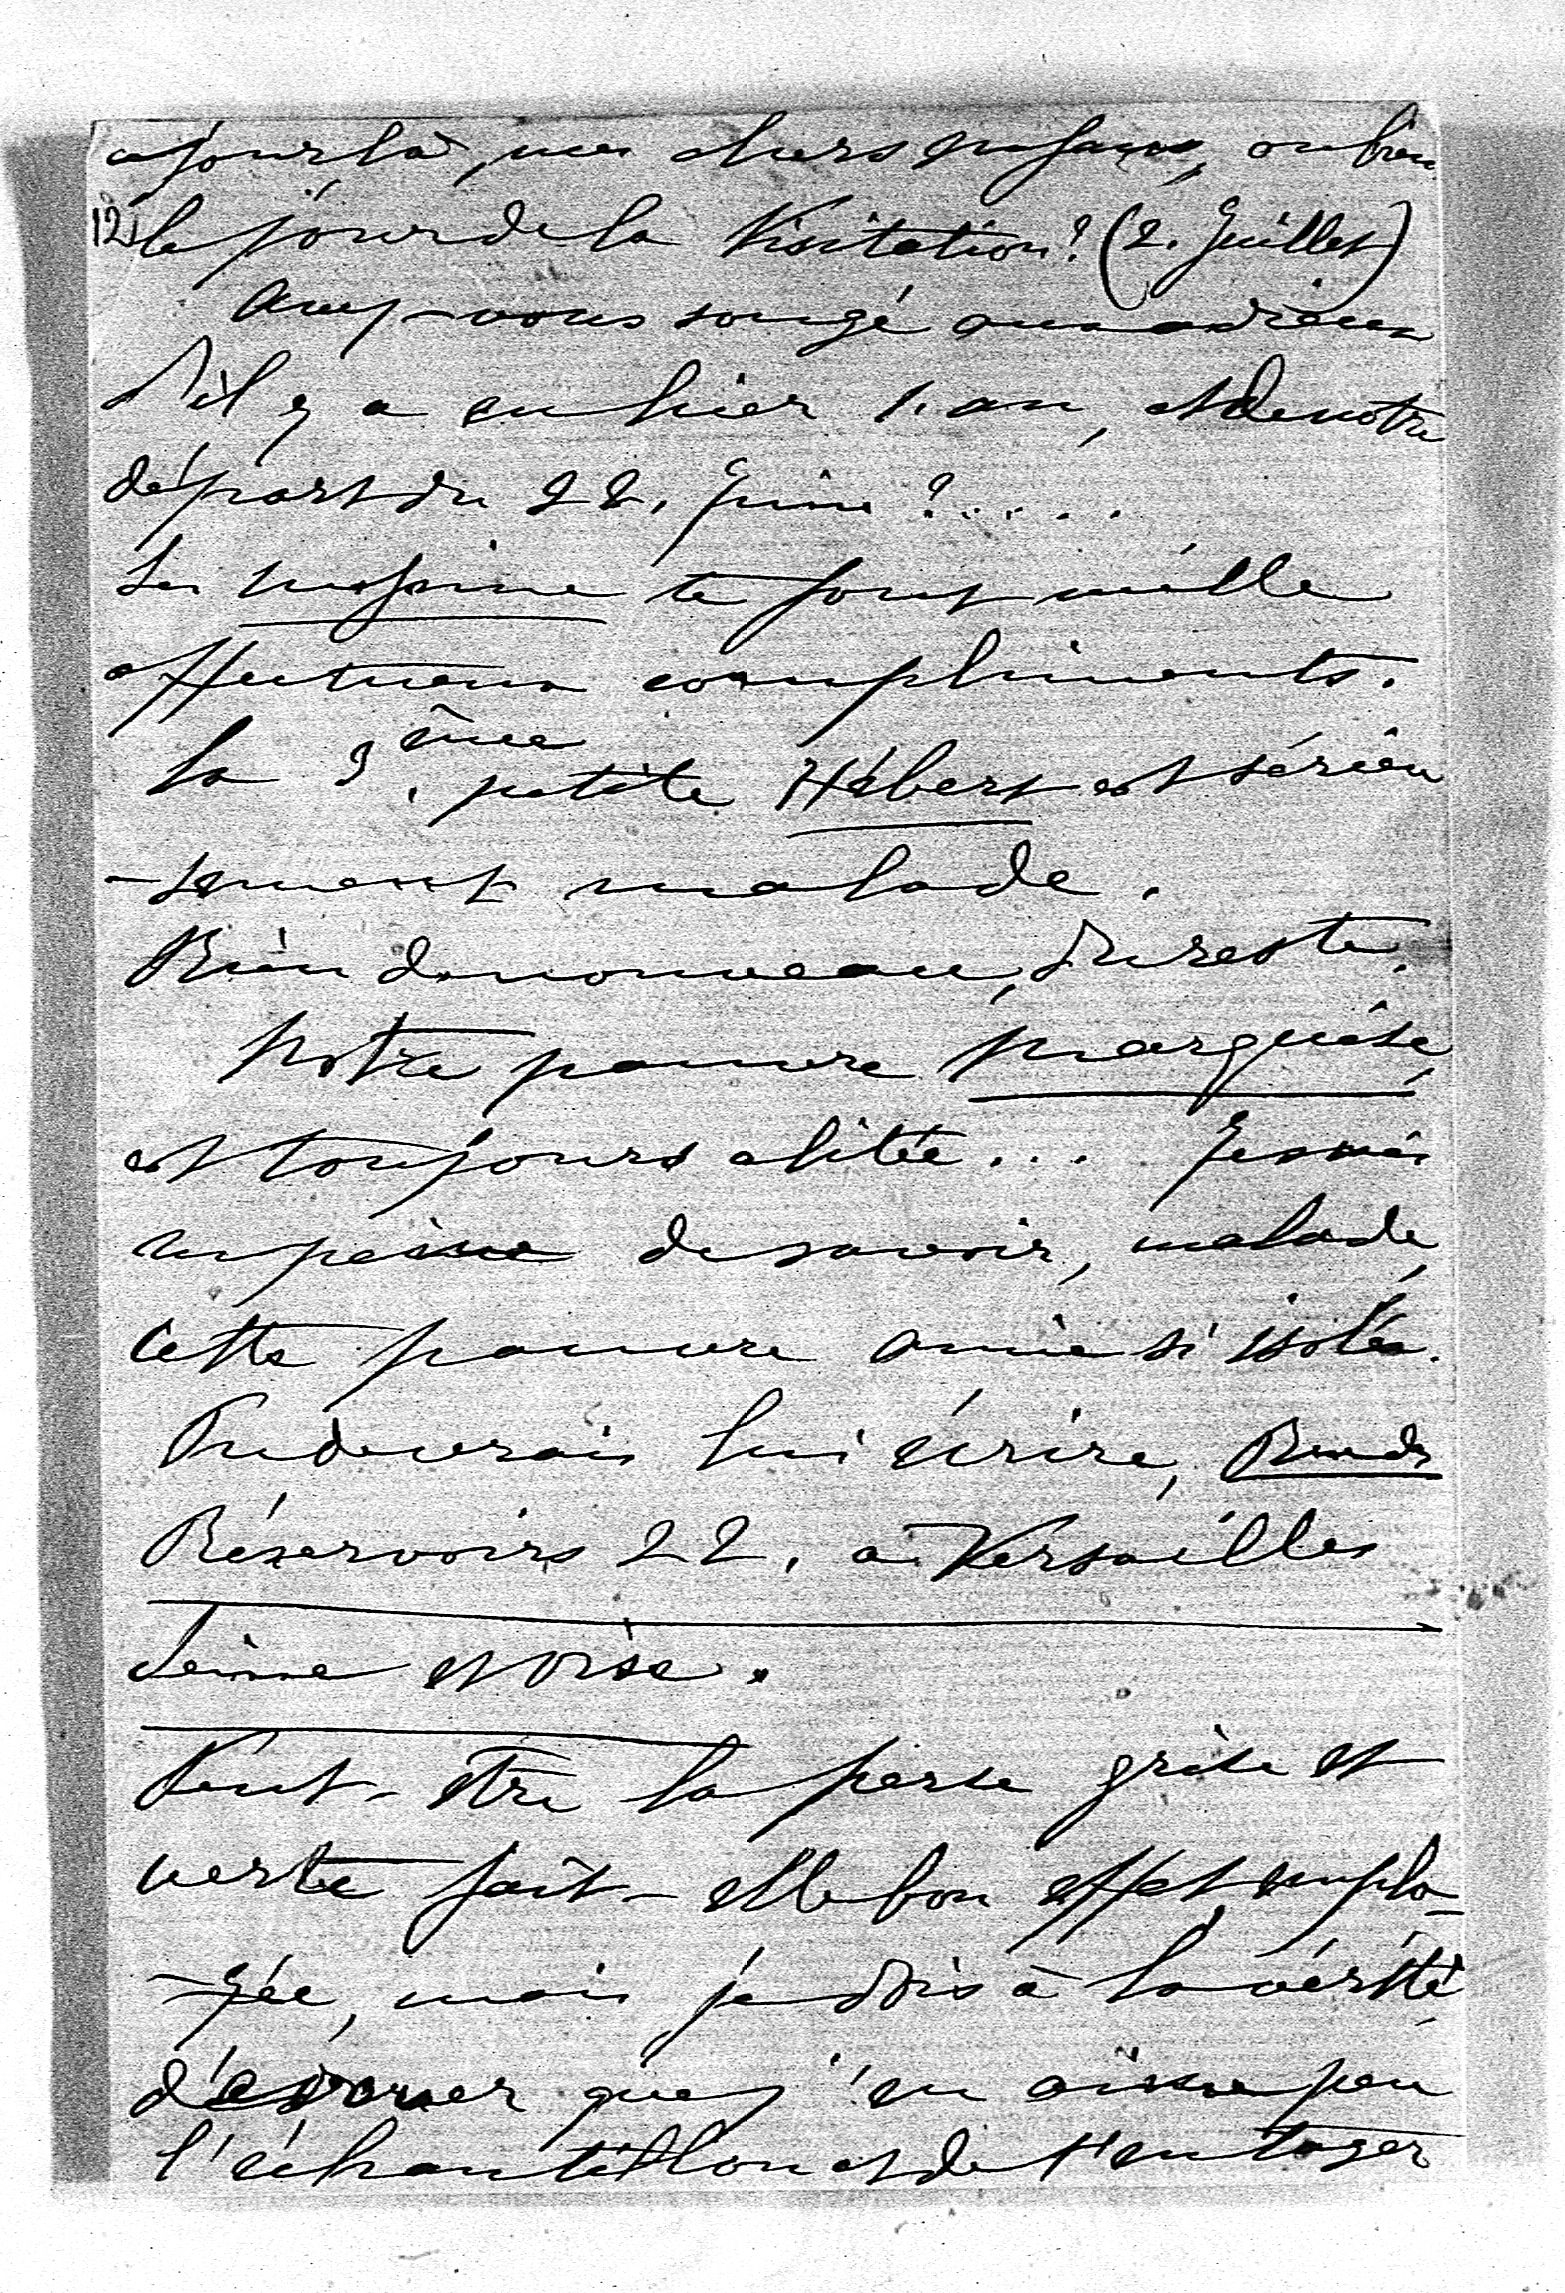 ce jour là, mes chers enfants, ou bien
12) le jour de la Visitation? (2. Juillet)
Avez-vous songé aux adieux
qu'il y a eu hier 1. an, et de notre
départ du 22. Juin?.....
Les te font mille
affectueux compliments.
La 3.ème petite Hébert est sérieu
-sement malade.
Rien de nouveau, du reste.
Notre pauvre Marquise,
est toujours alitée... Je suis
en peine de savoir, malade,
cette pauvre amie si isolée.
Tu devrais lui écrire, Rue des
Réservoirs 22. à Versailles
Seine et Oise.
Peut-être la perse grise et
verte fait-elle bon effet emplo-
-yée, mais je dois à la vérité
d'avouer que j'en aime peu
l'échantillon et de t'en